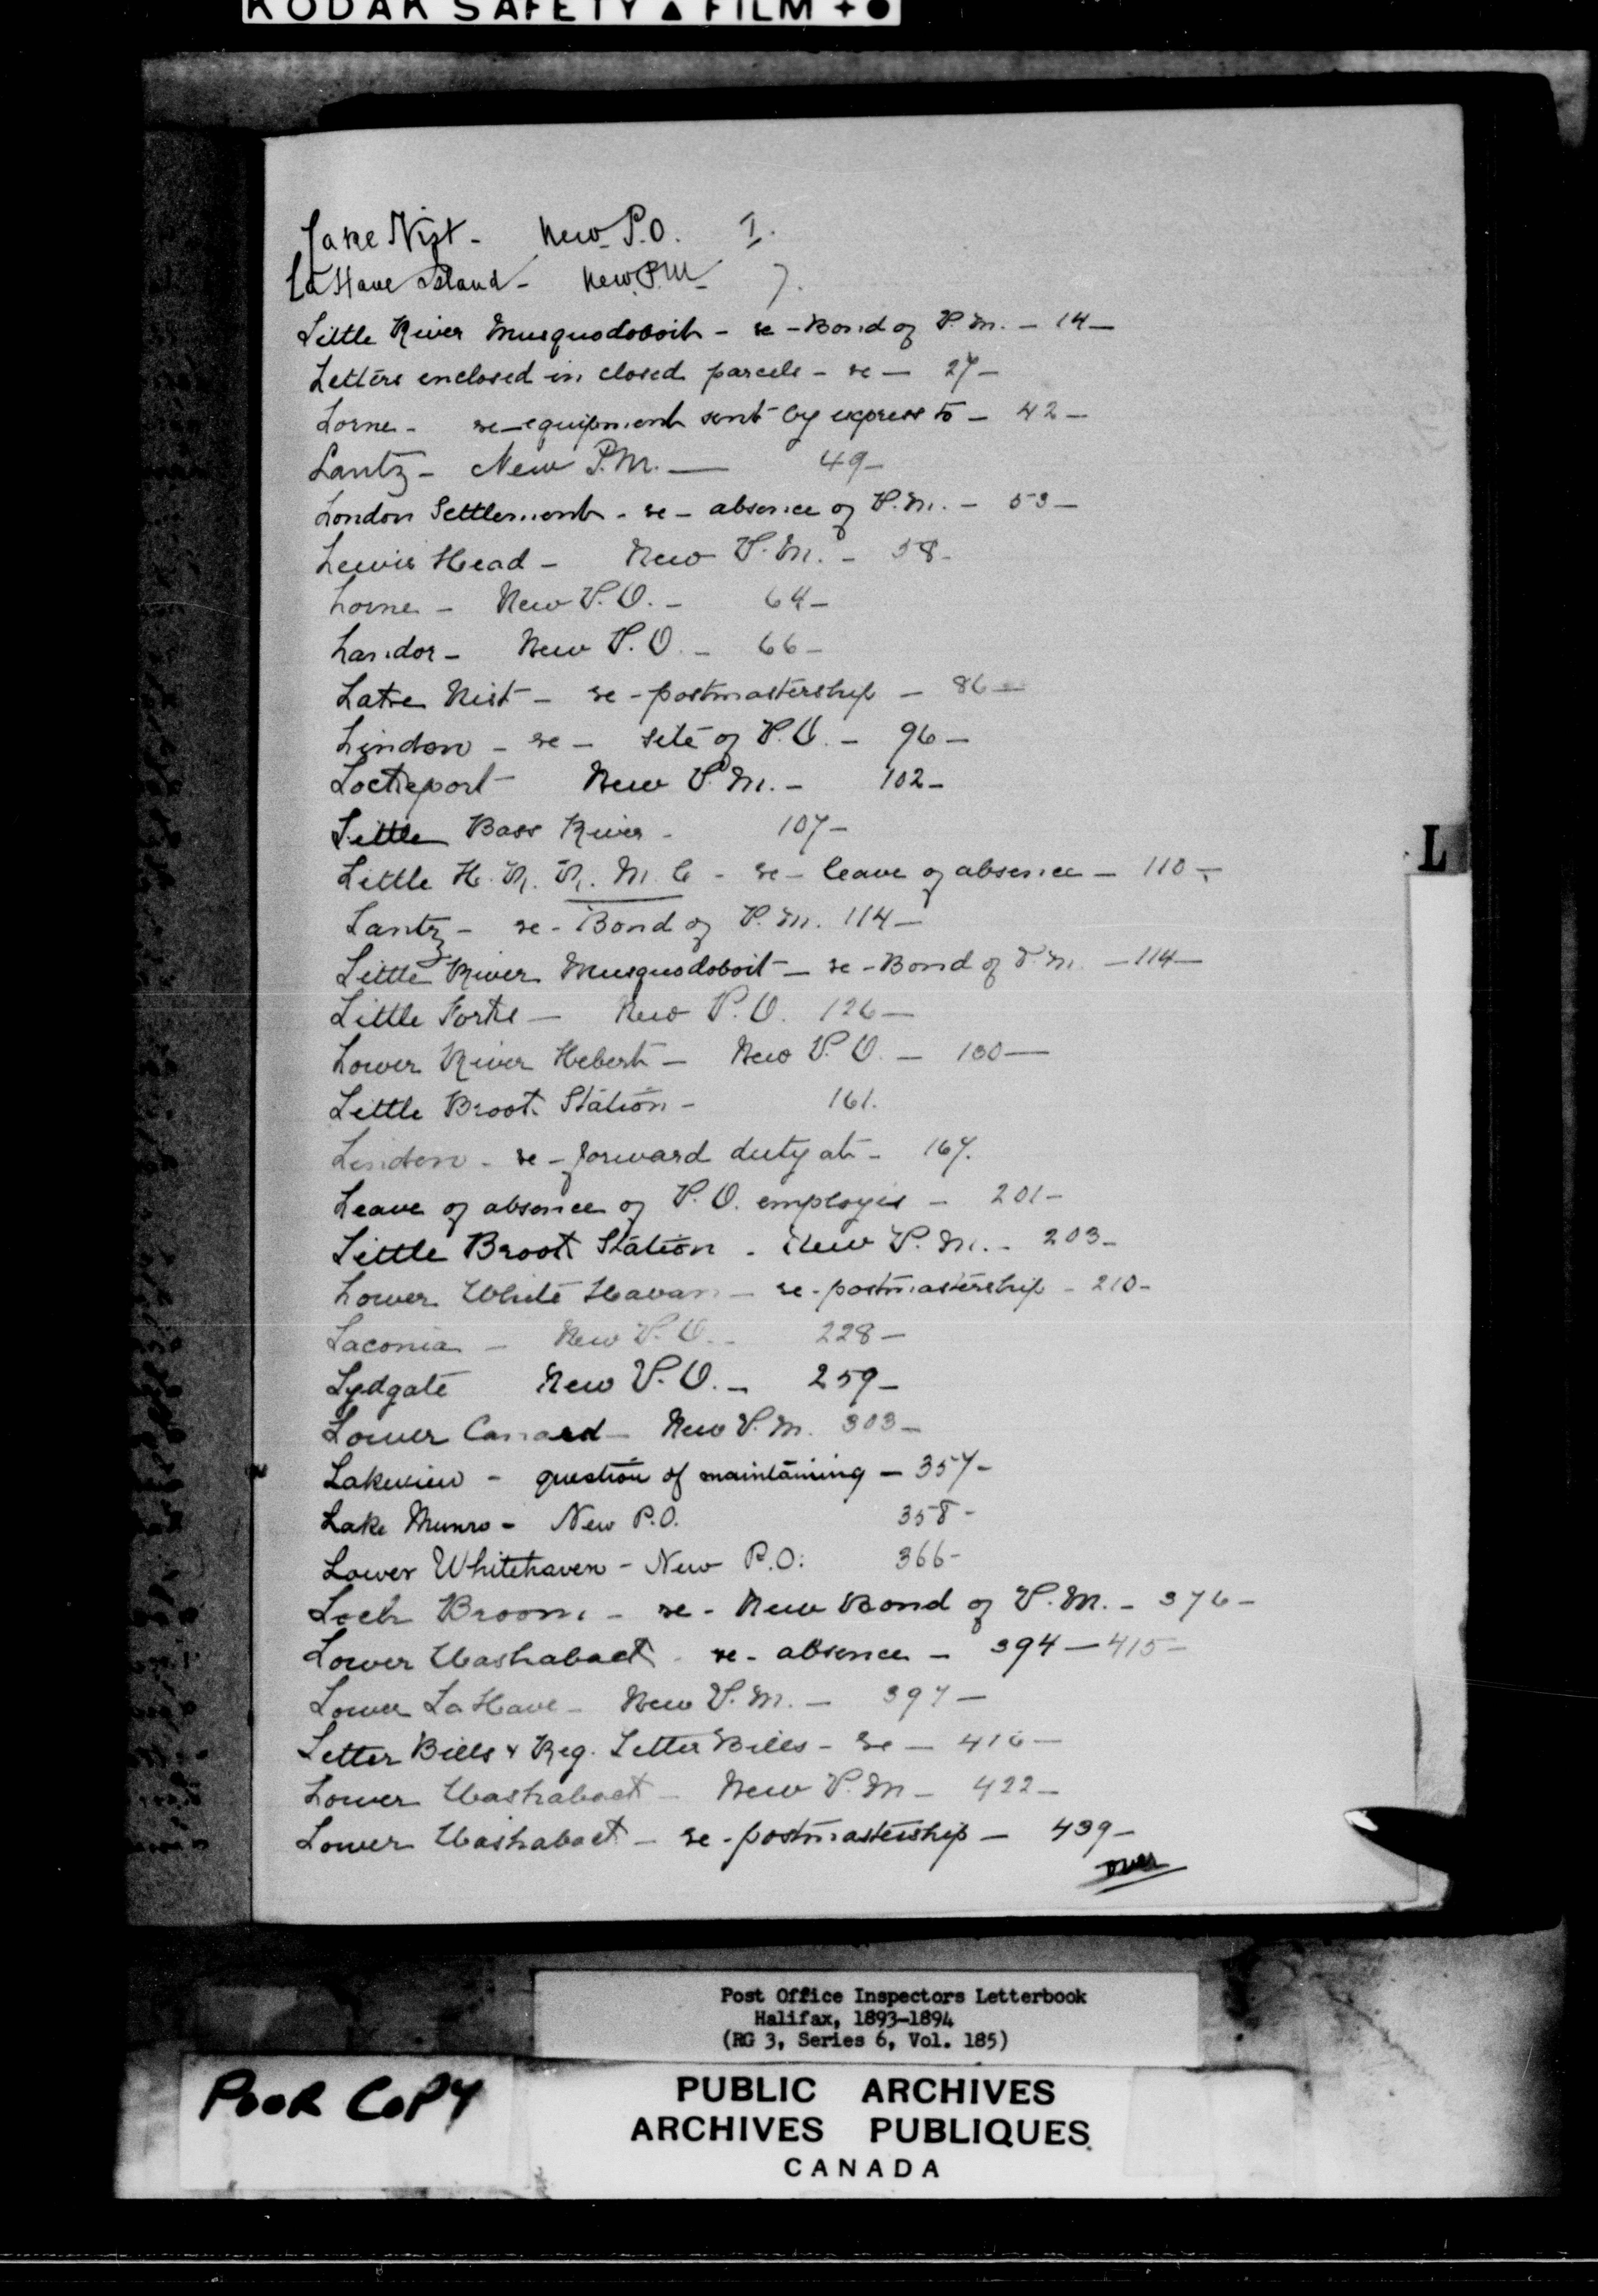 KODAK SAFETY ▲ FILM + ●
Lake Nist - New P.O. 1.
La Have Island - New P.M. 7.
Little River Musquodoboit - re - Bond of P.M. - 14 -
Letters enclosed in closed parcels - re - 27 -
Lorne - re - equipment sent by express to - 42 -
Lantz - New P.M. - 49 -
London Settlement - re - absence of P.M. - 53 -
Lewis Head - New P.M. - 58 -
Lorne - New P.O. - 64 -
Landor - New P.O. - 66 -
Lake Nist - re - postmastership - 86 -
Lindon - re - site of P.O. - 96 -
Lockeport New P.M. - 102 -
Little Bass River - 107 -
Little H. R. R. M. C - re - leave of absence - 110 -
Lantz - re - Bond of P.M. 114 -
Little River Musquodoboit - re - Bond of P.M. - 114 -
Little Forks - New P.O. 126 -
Lower River Hebert - New P.O. - 130 -
Little Brook Station - 161.
Lindon - re - forward duty at - 167.
Leave of absence of P.O. employes - 201 -
Little Brook Station - New P.M. - 203 -
Lower White Havan - re - postmastership - 210 -
Laconia - New P.O. - 228 -
Lydgate New P.O. - 259 -
Lower Canard - New P.M. 303 -
Lakeview - question of maintaining - 357 -
Lake Munro - New P.O. 358 -
Lower Whitehaven - New P.O. 366 -
Loch Broom - re - New Bond of P.M. - 376 -
Lower Washaback - re - absence - 394 - 415 -
Lower La Have - New P.M. - 397 -
Letter Bills & Reg. Letter Bills - re - 416 -
Lower Washaback - New P.M - 422 -
Lower Washaback - re - postmastership - 439 -
over
L
Post Office Inspectors Letterbook
Halifax, 1893-1894
(RG 3, Series 6, Vol. 185)
POOR COPY
PUBLIC ARCHIVES
ARCHIVES PUBLIQUES
CANADA